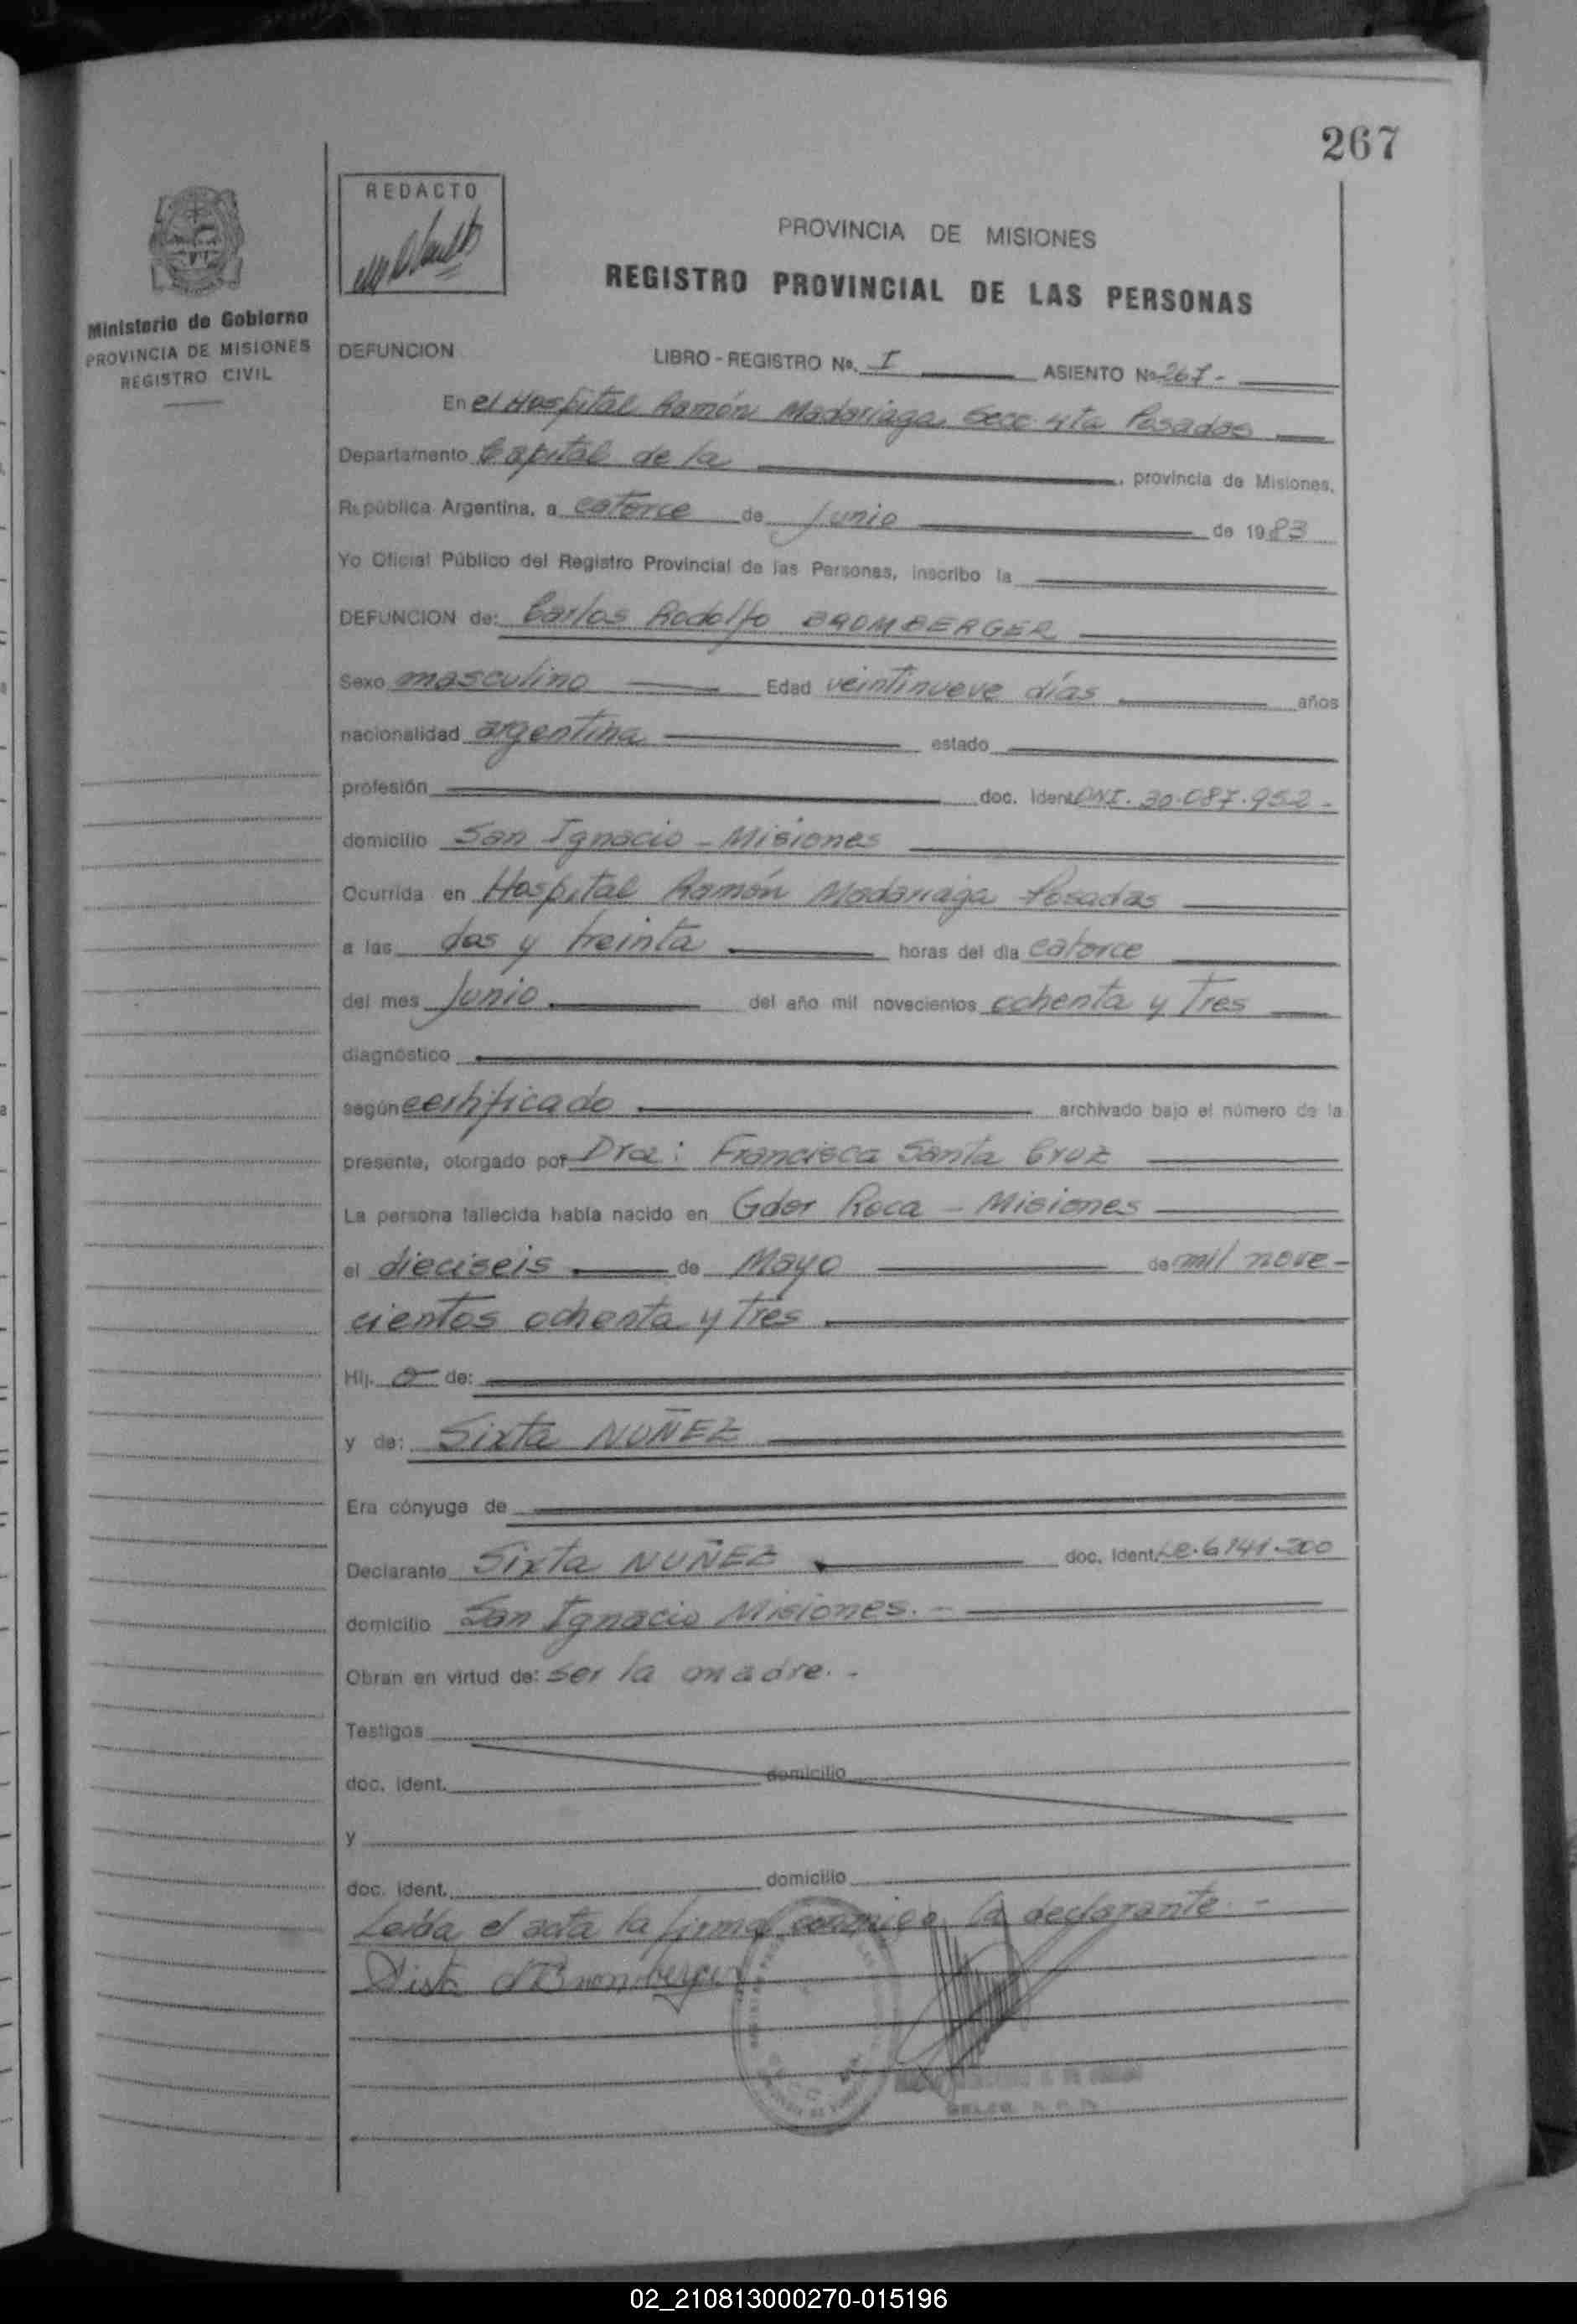 267
REDACTO
PROVINCIA DE MISIONES
REGISTRO PROVINCIAL DE LAS PERSONAS
Ministerio de Gobierno
PROVINCIA DE MISIONES
REGISTRO CIVIL
DEFUNCION LIBRO - REGISTRO No. I ASIENTO No 267 -
En el Hospital Ramón Madariaga Secc 4ta Posadas
Departamento Capital de la , provincia de Misiones,
República Argentina, a catorce de Junio de 1983
Yo Oficial Público del Registro Provincial de las Personas, inscribo la
DEFUNCION de: Carlos Rodolfo BROMBERGER
Sexo masculino Edad veintinueve días años
nacionalidad argentina estado
profesión doc. Ident DNI. 30.087.952 -
domicilio San Ignacio - Misiones
Ocurrida en Hospital Ramón Madariaga Posadas
a las dos y treinta horas del día catorce
del mes Junio del año mil novecientos ochenta y Tres
diagnóstico
según certificado archivado bajo el número de la
presente, otorgado por Dra: Francisca Santa Cruz
La persona fallecida había nacido en Gdor Roca - Misiones
el dieciseis de Mayo de mil nove-
cientos ochenta y tres
Hij. o de:
y de: Sixta NUÑEZ
Era cónyuge de
Declarante Sixta NUÑEZ doc. Ident. LC. 6.141.200
domicilio San Ignacio Misiones. -
Obran en virtud de: ser la madre. -
Testigos
doc. ident. domicilio
y
doc. ident. domicilio
Leída el acta la firma conmigo la declarante. -
Sixta d Bromberger
02_210813000270-015196